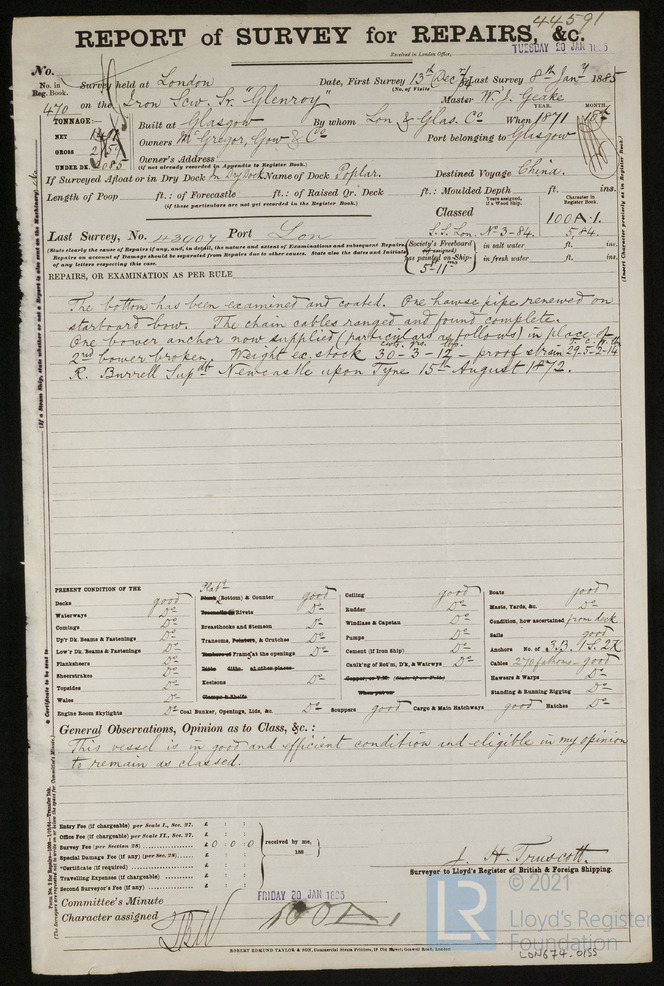 44591
REPORT of SURVEY for REPAIRS, &c.
Received in London Office,
TUESDAY 20 JAN 1885
No.
No. in Reg. Book. Survey held at London Date, First Survey 13th Decr/84 Last Survey 8th Jany 1885
(No. of Visits
470 on the Iron Scw. Sr. "Glenroy" Master W. J. Geake
TONNAGE:— YEAR. MONTH.
NET Built at Glasgow By whom Lon. & Glas. Co When 1871
GROSS Owners McGregor, Gow & Co Port belonging to Glasgow
UNDER DK. 2085 Owner's Address
(if not already recorded in Appendix to Register Book.)
If Surveyed Afloat or in Dry Dock In Dry Dock Name of Dock Poplar. Destined Voyage China.
Length of Poop ft.: of Forecastle ft.: of Raised Qr. Deck ft.: Moulded Depth ft. ins.
(if these particulars are not yet recorded in the Register Book.)
Years assigned, if a Wood Ship.
Character in Register Book.
Classed 100A.1.
Last Survey, No. 43907 Port Lon S.S. Lon. No 3-84. 5,84.
(State clearly the cause of Repairs if any, and, in detail, the nature and extent of Examinations and subsequent Repairs.
Repairs on account of Damage should be separated from Repairs due to other causes. State also the dates and Initials
of any letters respecting this case.
Society's Freeboard (if assigned) has painted on Ship— 5-11 ins in salt water ft. ins.
in fresh water ft. ins.
(Insert Character precisely as in Register Book.)
REPAIRS, OR EXAMINATION AS PER RULE
The bottom has been examined and coated. One hawse pipe renewed on
starboard bow. The chain cables ranged and found complete.
One bower anchor now supplied (particulars as follows) in place of
2nd bower broken. Weight ex. stock 30-3-12 – proof strain 29-5-2-14
R. Burrell Supdt Newcastle upon Tyne 15th August 1872.
PRESENT CONDITION OF THE
Decks good
Waterways Do
Comings Do
Up'r Dk. Beams & Fastenings Do
Low'r Dk. Beams & Fastenings Do
Planksheers Do
Sheerstrakes Do
Topsides Do
Wales Do
Engine Room Skylights Do
Platg (Bottom) & Counter good
Rivets Do
Breasthooks and Stemson Do
Transoms, Pointers, & Crutches Do
Frames at the openings Do
Ditto ditto, at other places
Keelsons Do
Clamps & Shelfs
Coal Bunker, Openings, Lids, &c. Do
Ceiling good
Rudder Do
Windlass & Capstan Do
Pumps Do
Cement (if Iron ship) Do
Caulk'ng of Bot'm, D'k, & Watrways Do
When put on
Scuppers good Cargo & Main Hatchways good Hatches Do
Boats good
Masts, Yards, &c. Do
Condition, how ascertained from deck
Sails good
Anchors No. of 3.B. 1S. 2K
Cables 270 fathoms good
Hawsers & Warps Do
Standing & Running Rigging Do
General Observations, Opinion as to Class, &c.:
This vessel is in good and efficient condition and eligible in my opinion
to remain as classed.
Entry Fee (if chargeable) per Scale I., Sec. 27. £ : :
Office Fee (if chargeable) per Scale II., Sec. 27. £ : :
Survey Fee (per Section 28) £ 0 : 0 : 0
Special Damage Fee (if any) (per Sec. 28) £ : :
*Certificate (if required) £ : :
Travelling Expenses (if chargeable) £ : :
Second Surveyor's Fee (if any) £ : :
received by me,
188
J. H. Truscott.
Surveyor to Lloyd's Register of British & Foreign Shipping.
Committee's Minute FRIDAY 20 JAN 1885
Character assigned 100A1
ROBERT EDMUND TAYLOR & SON, Commercial Steam Printers, 19 Old Street, Goswell Road, London
LR © 2021
Lloyd's Register
Foundation
LON674.0155